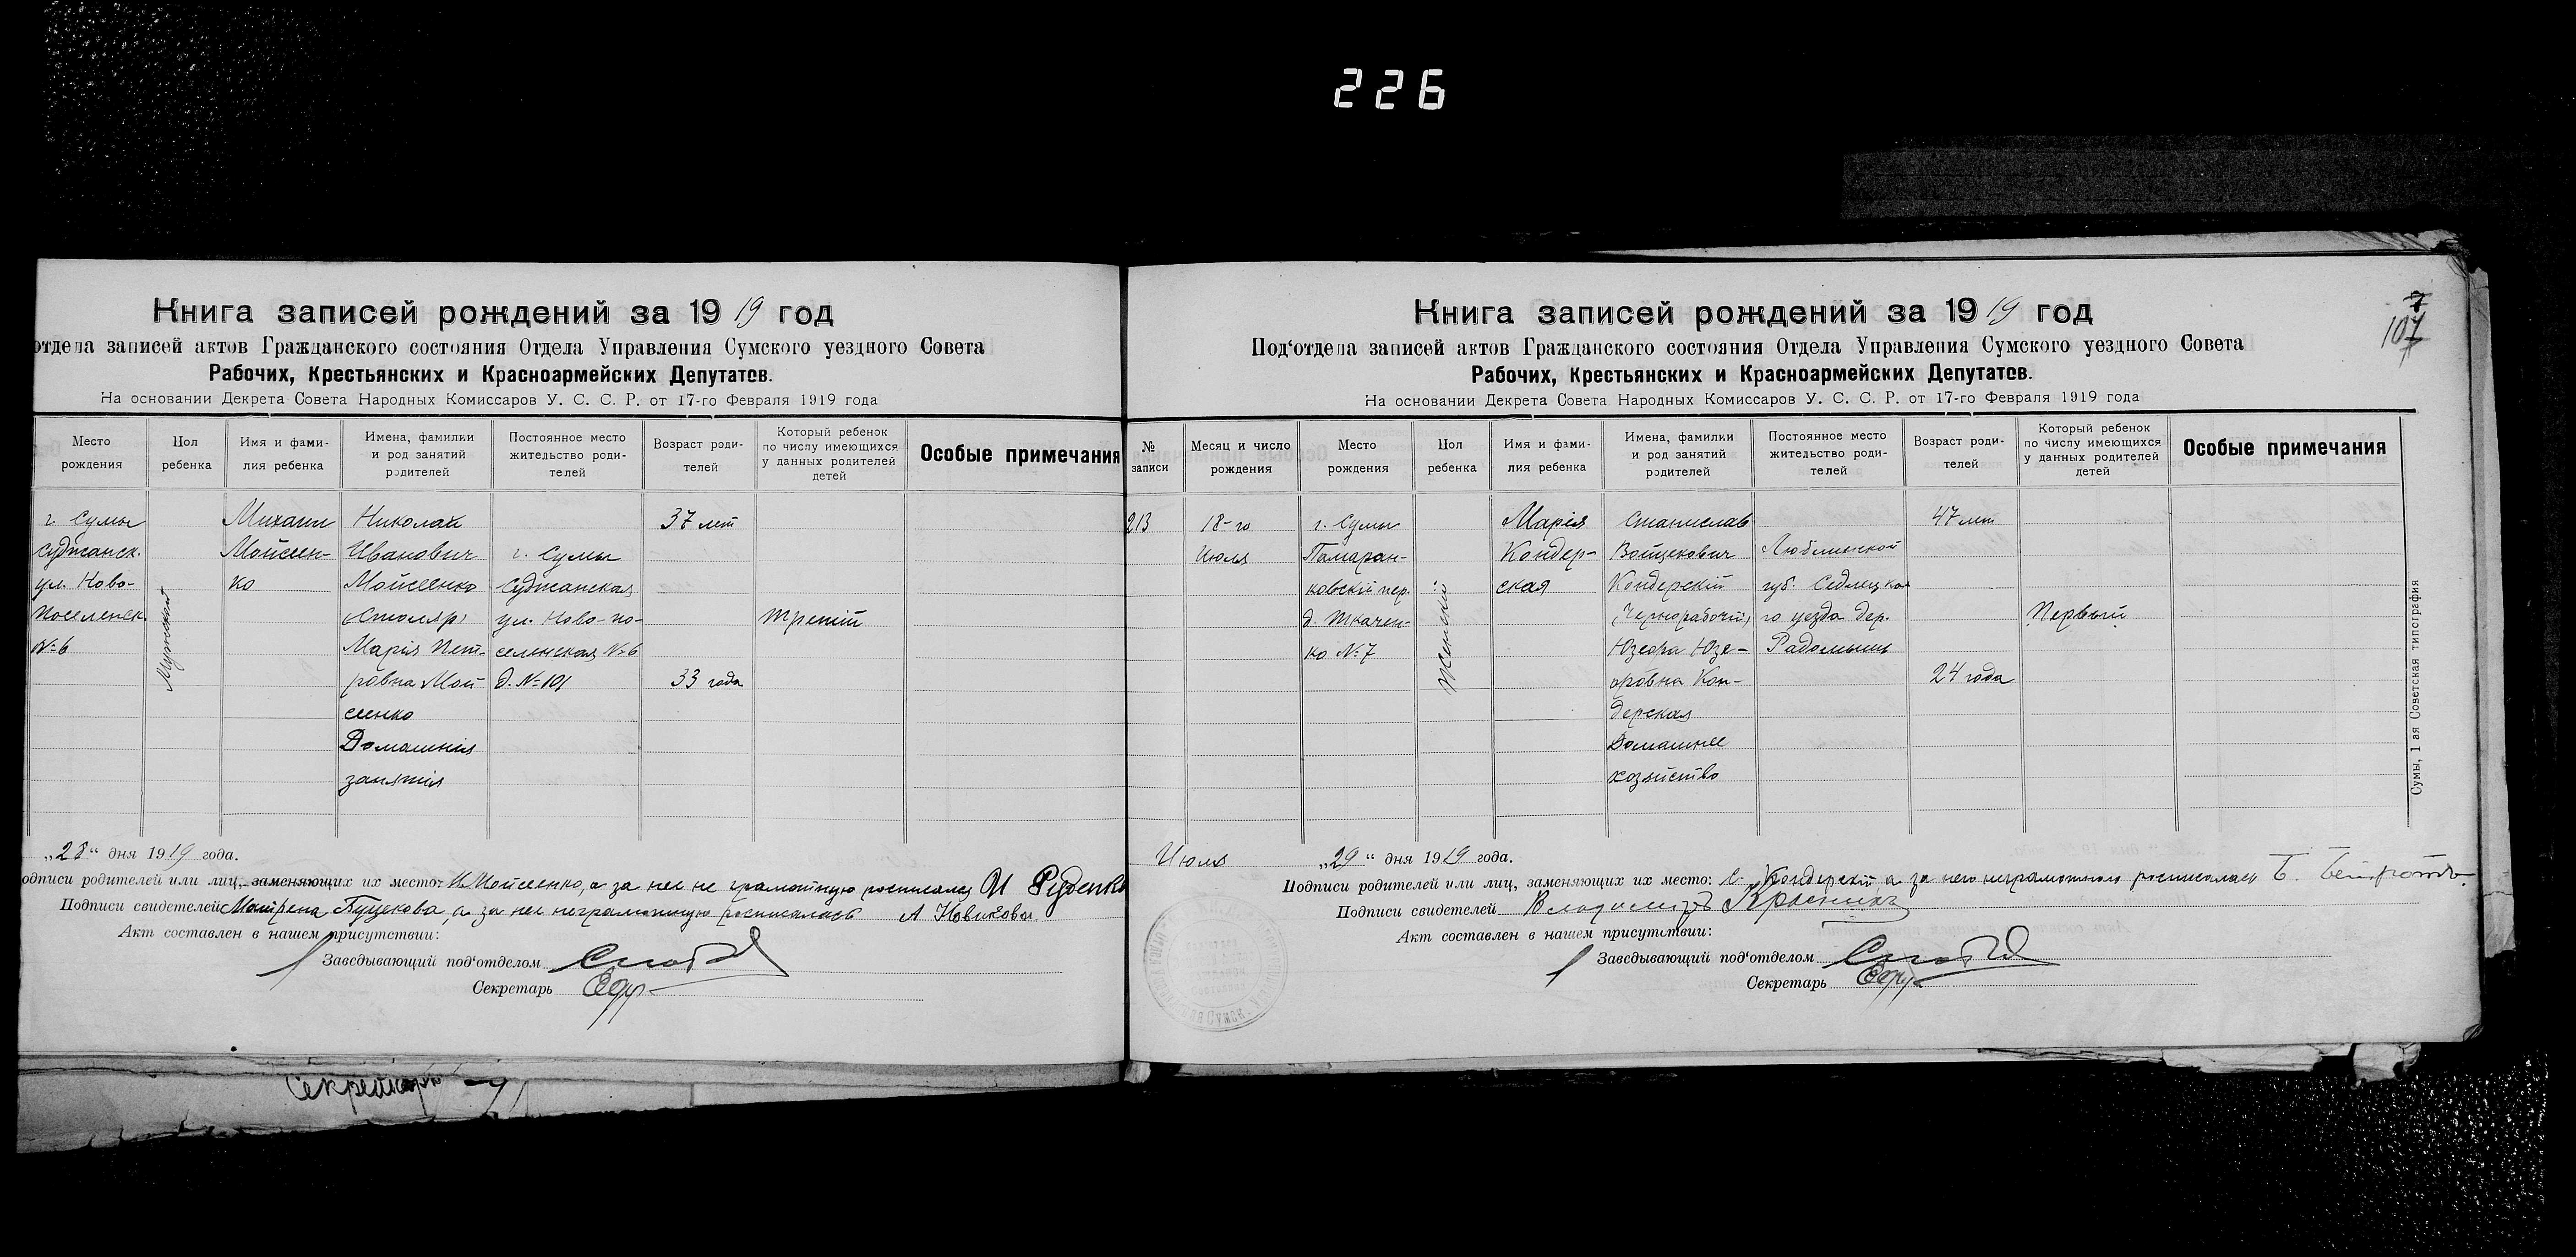 226
Книга записей рождений за 1919 год
отдела записей актов Гражданского состояния Отдела Управления Сумского уездного Совета
Рабочих, Крестьянских и Красноармейских Депутатов.
На основании Декрета Совета Народных Комиссаров У. С. С. Р. от 17-го Февраля 1919 года
Место рождения
Пол ребенка
Имя и фами-
лия ребенка
Имена, фамилии
и род занятий
родителей
Постоянное место
жительство роди-
телей
Возраст роди-
телей
Который ребенок
по числу имеющихся
у данных родителей
детей
Особые примечания
г. Сумы
Суджанск.
ул. Ново-
Поселенск.
№ 6
Мужской
Михаил
Мойсеен-
ко
Николай
Иванович
Мойсеенко
(Столяр)
Марія Пет-
ровна Мой
сеенко
Домашнія
занятія
г. Сумы
Суджанская
ул. Ново-по-
селенская № 6
д. № 101
37 лет
33 года
Третій
„28“ дня 1919 года.
одписи родителей или лиц, заменяющих их место: Н Мойсеенко, а за нее не грамотную росписался И Руденко
Подписи свидетелей Матрена а за нее неграмотную росписалась А Новикова
Акт составлен в нашем присутствии:
Заведывающий под‘отделом
Секретарь
Секретарь
7
107
Книга записей рождений за 1919 год
Под‘отдела записей актов Гражданского состояния Отдела Управления Сумского уездного Совета
Рабочих, Крестьянских и Красноармейских Депутатов.
На основании Декрета Совета Народных Комиссаров У. С. С. Р. от 17-го Февраля 1919 года
№
записи
Месяц и число
рождения
Место
рождения
Пол
ребенка
Имя и фами-
лия ребенка
Имена, фамилии
и род занятий
родителей
Постоянное место
жительство роди-
телей
Возраст роди-
телей
Который ребенок
по числу имеющихся
у данных родителей
детей
Особые примечания
213
18-го
Июля
г. Сумы
Памаран-
ковскій пер.
д. Ткачен-
ко № 7
Женскій
Марія
Кондер-
ская
Станислав
Войцехович
Кондерскій
(Чернорабочій)
Юзефа Юзе-
форовна Кон-
дерская
Домашнее
хозяйство
Люблинской
губ. Седлецка
го уезда дер.
Радомышь
47 лет
24 года
Первый
Сумы, 1 ая Советская типография
Июля „29“ дня 1919 года.
Подписи родителей или лиц, заменяющих их место: С. Кондерскій, а за него неграмотного росписалась Б.
Подписи свидетелей Владимиръ
Акт составлен в нашем присутствии:
Заведывающий под‘отделом
Секретарь